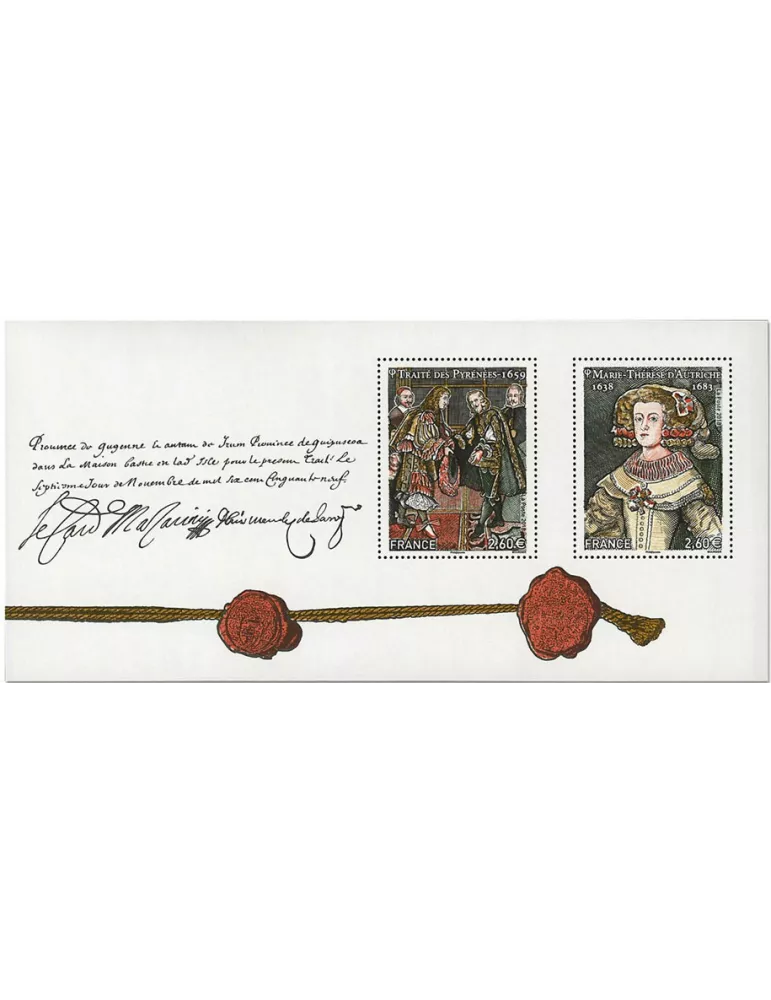 Prouince de guyenne le autam de Irum Prouince de guipuscoa
dans La Maison bastie en lad. Isle pour le presem Traité Le
Septiesme Jour de Nouembre de mil six cem Cinquante neuf.
Le Card Mazarini
TRAITÉ DES PYRÉNÉES-1659
FRANCE 2,60€
MARIE-THÉRÈSE D'AUTRICHE
1638 1683
La Poste
FRANCE 2,60€